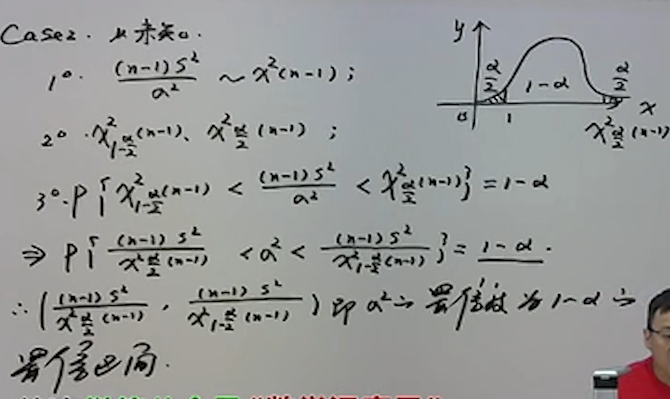 Case2. μ未知。
1°. (n-1)S²/σ² ~ χ²(n-1);
2°. χ²_{1-α/2}(n-1)、χ²_{α/2}(n-1);
3°. P{χ²_{1-α/2}(n-1) < (n-1)S²/σ² < χ²_{α/2}(n-1)} = 1-α
⇒ P{(n-1)S²/χ²_{α/2}(n-1) < σ² < (n-1)S²/χ²_{1-α/2}(n-1)} = 1-α.
∴ ((n-1)S²/χ²_{α/2}(n-1), (n-1)S²/χ²_{1-α/2}(n-1)) 即σ²的置信度为1-α的
置信区间.
y
α/2 1-α α/2
0 1 x
χ²_{α/2}(n-1)